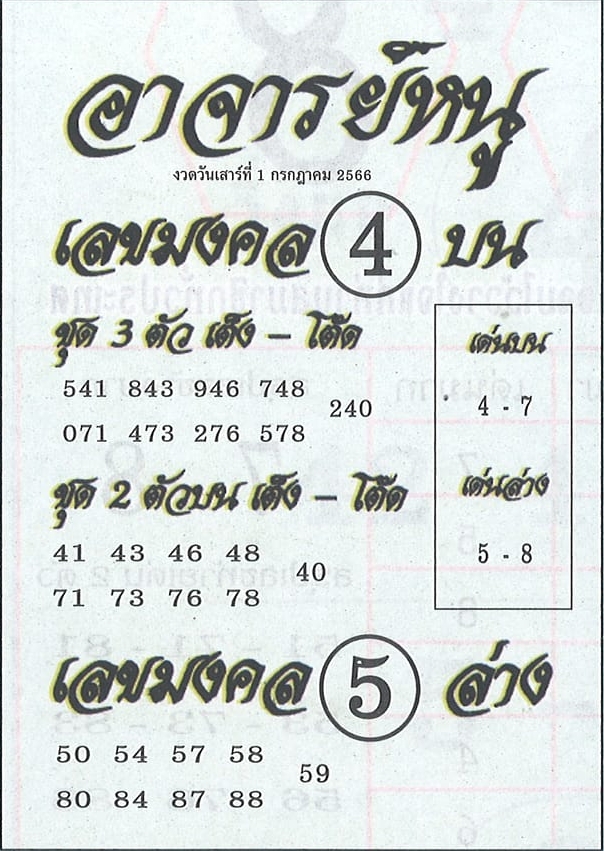 อาจารย์หนู
งวดวันเสาร์ที่ 1 กรกฎาคม 2566
เลขมงคล 4 บน
ชุด 3 ตัว เต็ง – โต๊ด
541 843 946 748
240
071 473 276 578
เด่นบน
4 - 7
ชุด 2 ตัวบน เต็ง – โต๊ด
41 43 46 48
40
71 73 76 78
เด่นล่าง
5 - 8
เลขมงคล 5 ล่าง
50 54 57 58
59
80 84 87 88